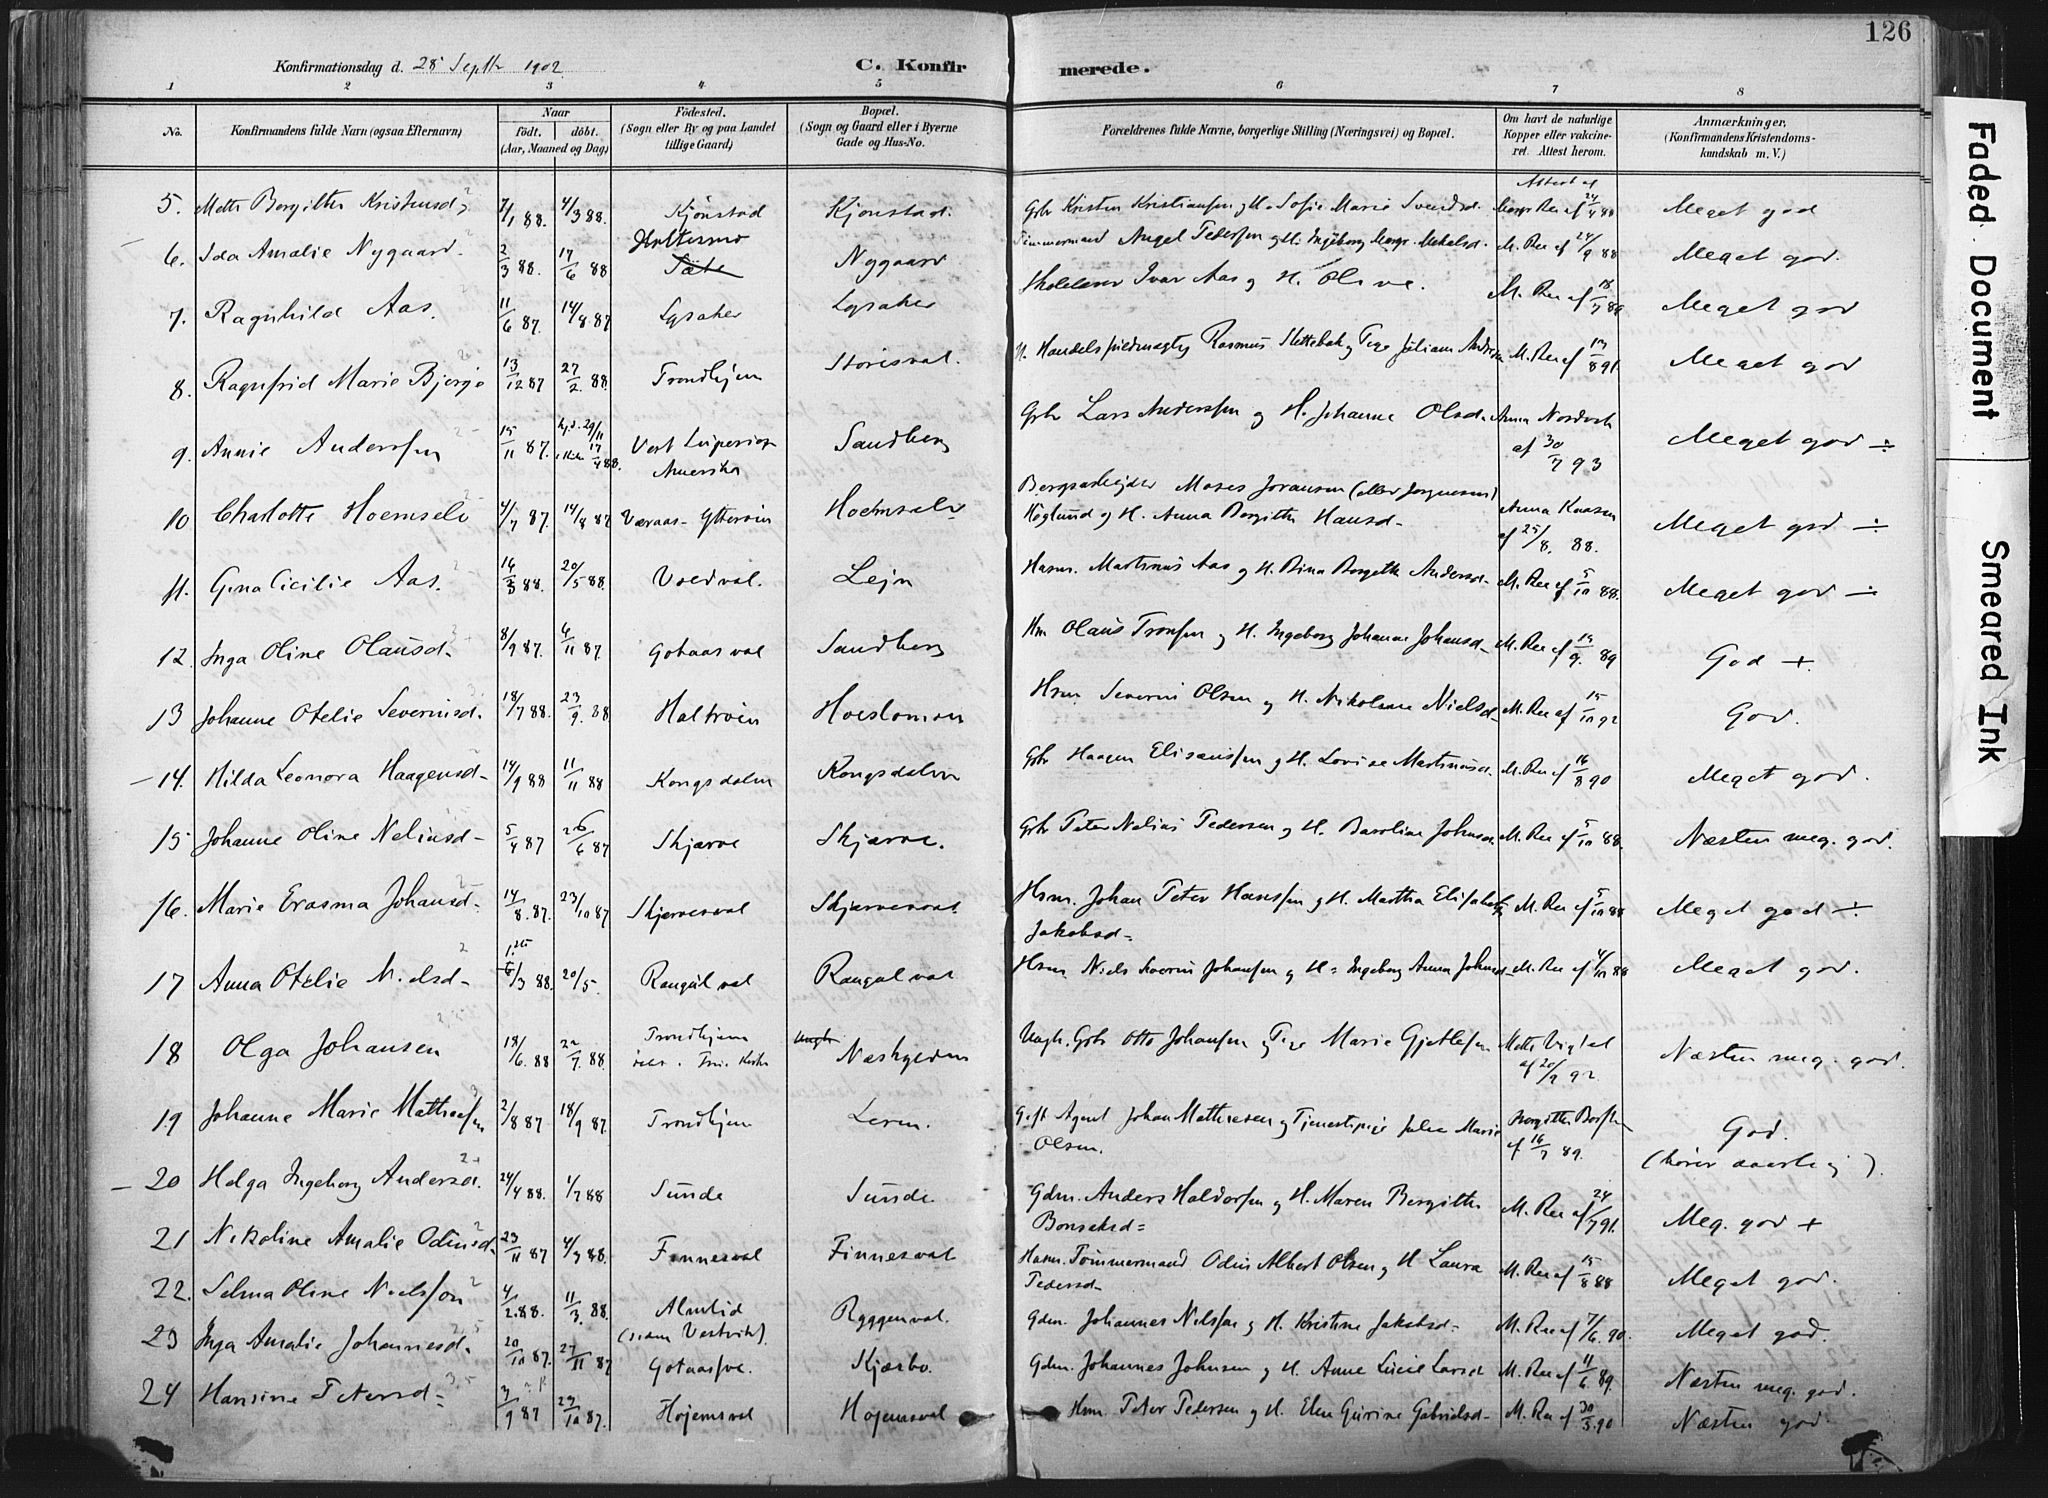 126
Konfirmationsdag d. 28 Septbr 1902
C. Konfir merede.
1 2 3 4 5 6 7 8
No. Konfirmandens fulde Navn (ogsaa Efternavn) Naar født. døbt. (Aar, Maaned og Dag) Fødested. (Sogn eller By og paa Landet tillige Gaard) Bopæl. (Sogn og Gaard eller i Byerne Gade og Hus-No. Forældrenes fulde Navne, borgerlige Stilling (Næringsvei) og Bopæl. Om havt de naturlige Kopper eller vakcineret. Attest herom. Anmærkninger, (Konfirmandens Kristendomskundskab m. V.)
5. Mette Bergitte Kristensd. 7/1 88. 4/3 88. Kjønstad Kjønstad. Gbr Kristen Kristiansen og H. Sofie Marie Svendsd. Attest af 24/4 88 Meget god
6. Ida Amalie Nygaard 2/3 88. 17/6 88 Holtesmo Nygaard Tømmermand Angel Pedersen og H. Ingeborg Mekalsd. M. Ree af 24/9 88 Meget god.
7. Ragnhild Aas. 11/6 87. 14/8 87 Lysaker Lysaker Skolelærer Ivar Aas og H. Olive. M. Ree af 18/7 89 Meget god
8. Ragnfrid Marie Bjerge 13/12 87 27/2 88 Trondhjem Storisval. Rasmus Slettebak og Pige Juliane M. Ree af 19/8 91. Meget god
9. Annie Anderssen 15/11 87. 29/11 17/4 88. Vest Superior Amerika Sandberg Gbr Lars Anderssen og H. Johanne Olsd. Anna Nordvik af 30/7 93 Meget god ÷
10 Charlotte Hoemselv 4/7 87. 14/8 87 Væraas- Ytterøen Hoemselv Bergsarbejder Moses Joransen (eller Jørgensen)
Höglund og H. Anna Bergitte Hansd- Anna Kaasen af 25/8. 88. Meget god ÷
11. Gina Cicilie Aas. 16/3 88. 20/5 88. Voldval. Lejn Husm. Martinus Aas og H. Bina Bergitte Andersd- M. Ree af 5/10 88. Meget god ÷
12. Inga Oline Olausd- 8/9 87. 6/11 87. Gotaasval Sandberg Hm Olaus Tronsen og H. Ingeborg Johanne Johansd- M. Ree af 19/9. 89 God +
13 Johanne Otelie Severinsd. 18/7 88. 23/9. 88 Haltrøen Hoeslomoen Hsm Severin Olsen og H. Nikoline Nielsd- M. Ree af 15/10 92 God.
14. Hilda Leonora Haagensd- 14/9 88 11/11 88 Kongsdalen Kongsdalen Gbr Haagen Elisæussen og H. Lovise Martinusd. M. Ree af 16/8 90 Meget god.
15 Johanne Oline Neliusd- 5/4 87 26/6 87 Skjærve Skjærve. Gbr Peter Nelius Pedersen og H. Baroline Johnsd. M. Ree af 5/10 88. Næsten meg. god.
16. Marie Erasma Johansd- 14/8. 87. 23/10 87 Skjervesval Skjærvesval. Hsm. Johan Peter Hanssen og H. Martha Elisabeth
Jakobsd- M. Ree af 5/10 88 Meget god ÷
17 Anna Otelie Nielsd- /3 88. 20/5. Rangul val Rangul val Hsm. Niels Severin Johansen og H= Ingeborg Anna Johnsd- M. Ree af 4/10 88 Meget god.
18 Olga Johansen 18/6. 88 22/7. 88. Trondhjem Frue Kirke Næshylden Ungk. Gbr Otto Johansen Pige Marie Gjetlesen Mette Vigtel af 20/9 92. Næsten meg. god.
19 Johanne Marie Mathiesen 2/8 87 18/9 87. Trondhjem Leren. Gift Agent Johan Mathiesen og Tjenestepige Julie Marie
Olsen. Bergitte Borsten af 16/7 89. God.
(hører daarlig).
20 Helga Ingeborg Andersd. 24/4 88. 1/7 88 Sunde Sunde Gdm. Anders Haldorsen og H. Maren Bergitte
Bonsaksd= M. Ree af 24/7 91. Meg. god +
21 Nikoline Amalie Odinsd- 23/11 87 4/3 88. Finnesval Finnesval Husm. Tømmermand Odin Albert Olsen og H Laura
Pedersd- M. Ree af 15/8 88 Meget god.
22. Selma Oline Nielssen 4/2. 88. 11/3. 88. Almlid
(nedm Vestvik). Ryggenval. Gdm. Johannes Nilssen og H. Kristine Jakobsd- M. Ree af 7/6. 90. Meget god.
23 Inga Amalie Johannesd. 20/10 87. 27/11 87 Gotaas Kjæsbo. Gdm. Johannes Johnsen og H. Anne Lucie Larsd M. Ree af 11/6. 89. Næsten meg. god.
24 Hansine Petersd- 3/9 87 29/10 87. Højemsval Højemsval Hsm. Peter Pedersen og H. Elen Gurine Gabrielsd- M. Ree af 30/3. 90 Næsten god.
Faded Document
Smeared Ink